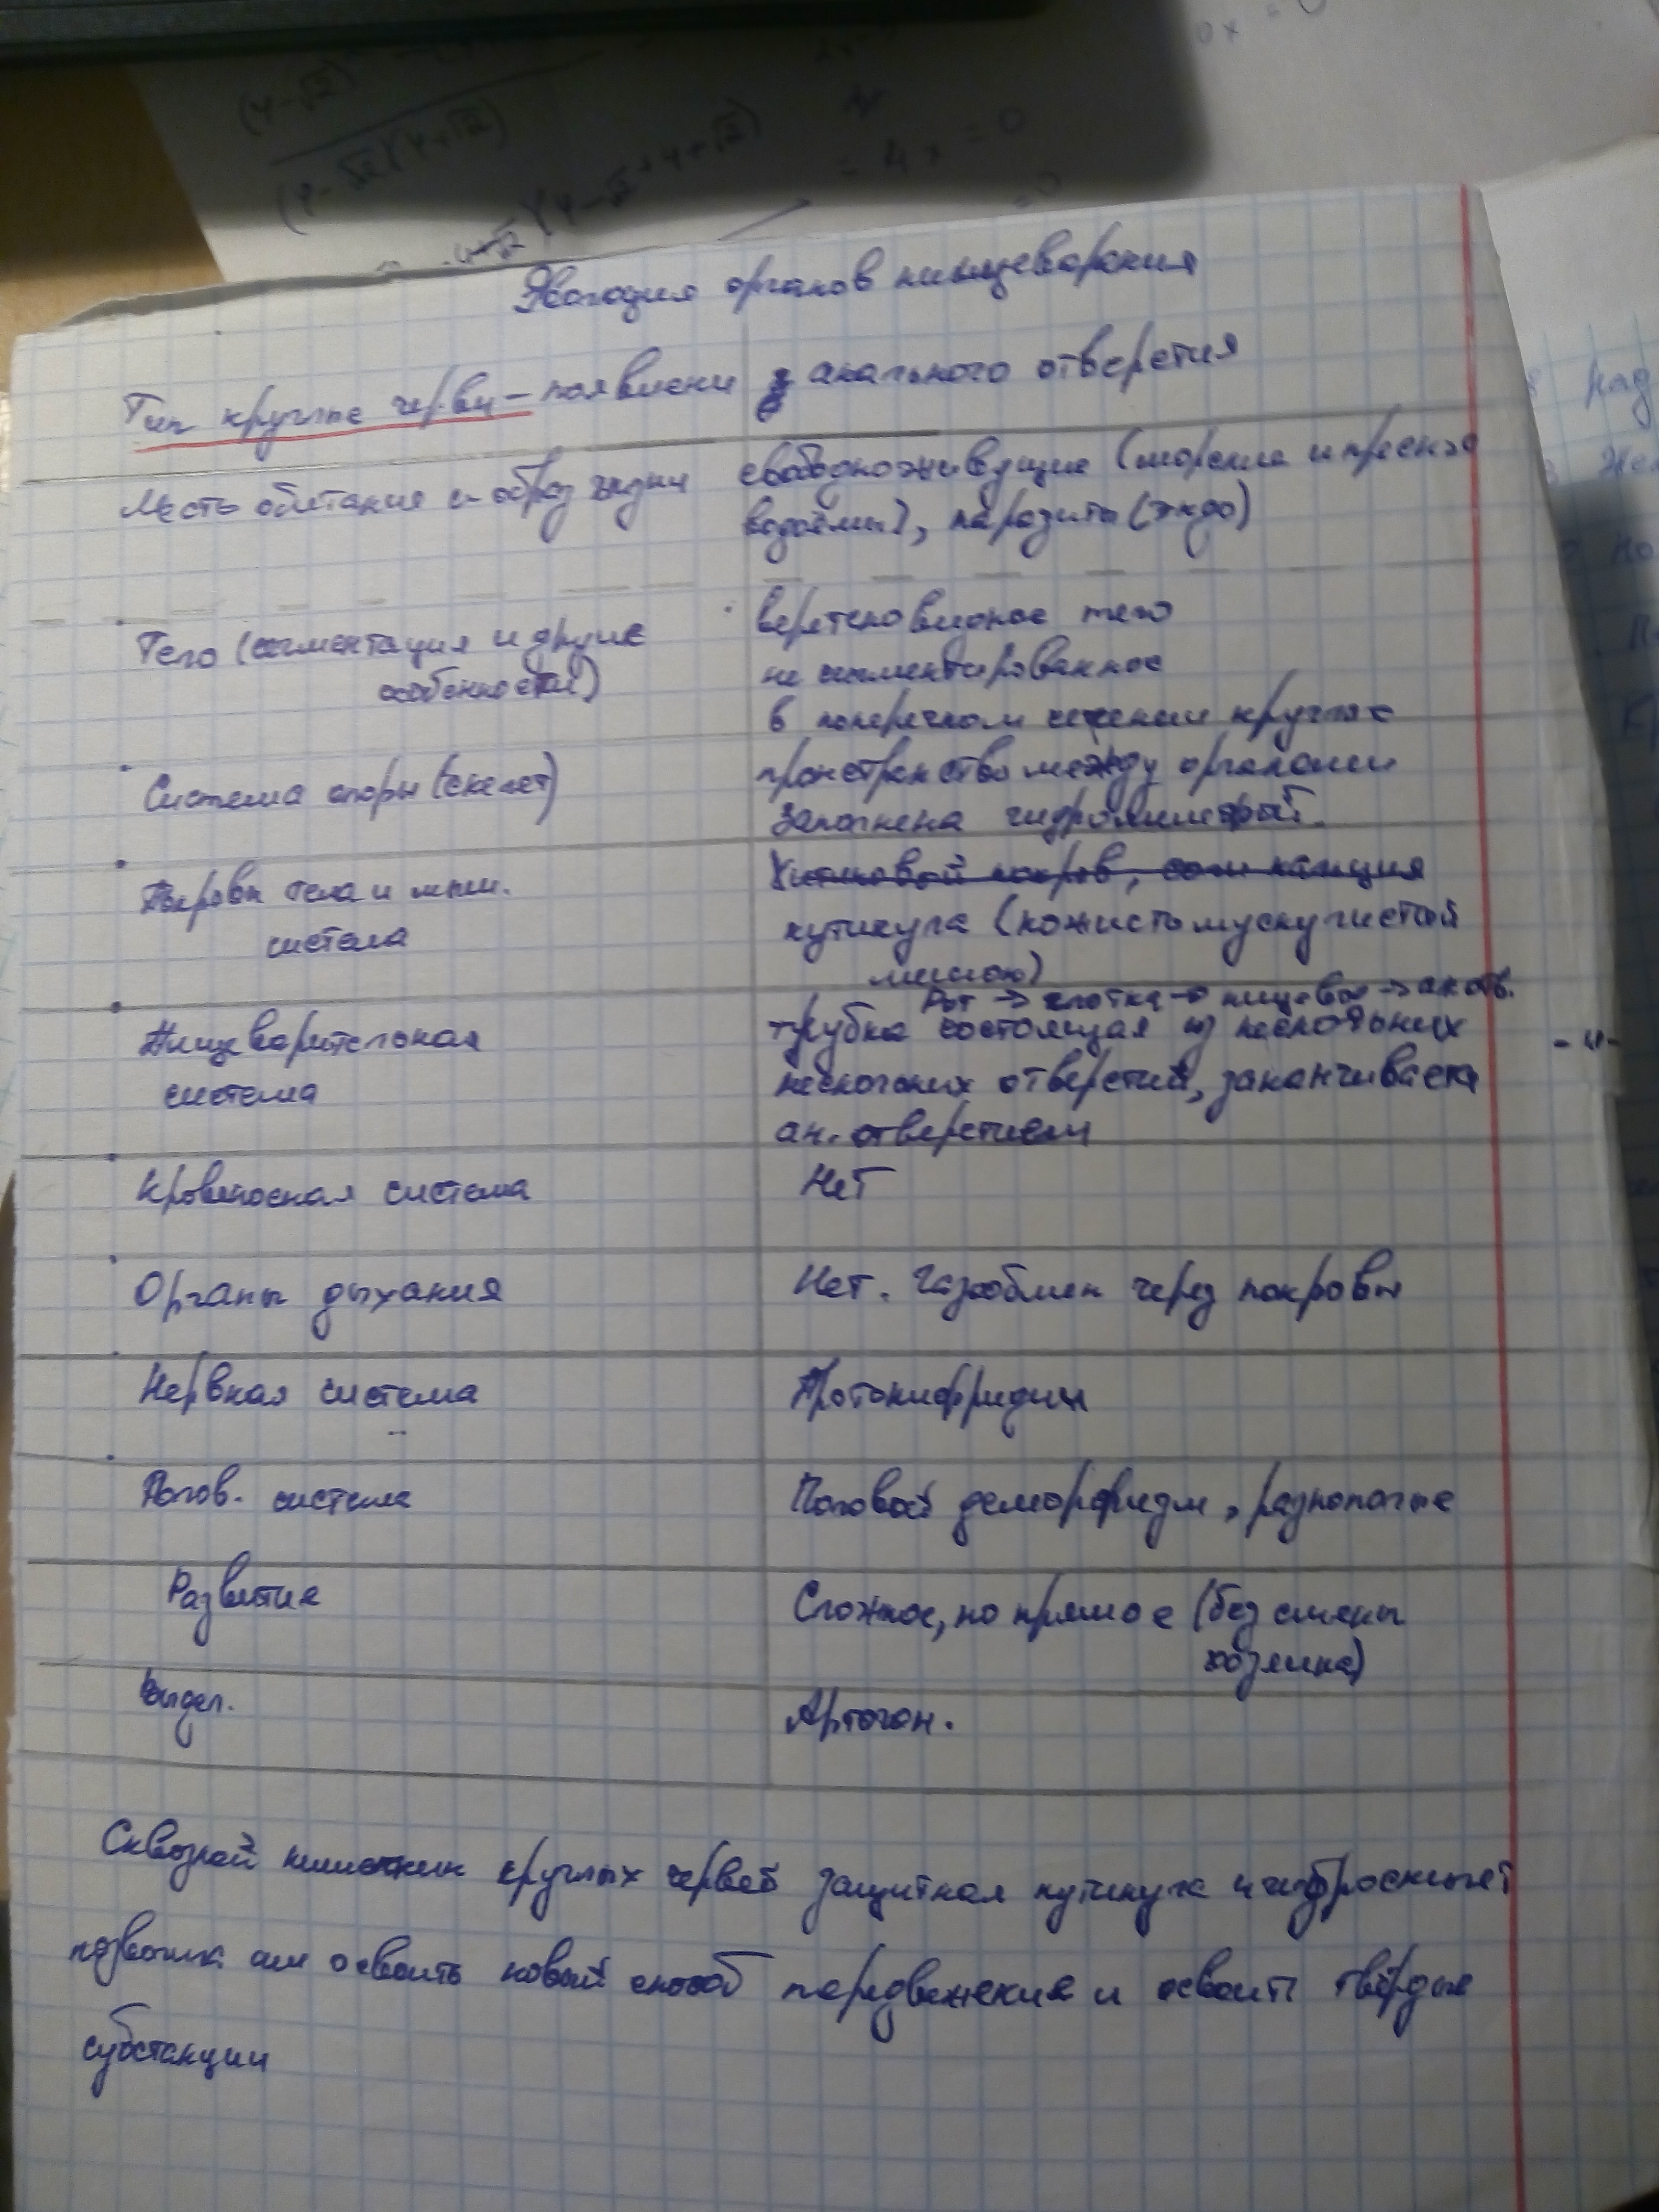 Эволюция органов пищеварения
Тип круглые черви – появлени анального отверстия
Место обитания и образ жизни
свободноживущие (морские и пресные
водоёмы), паразиты (эндо)
Тело (сегментация и другие
особенности)
веретеновидное тело
не сигментированное
в поперечном сечении круглые
Система опоры (скелет)
пронстранство между органами
Заполнена гидро
Покровы тела и мыш.
система
Хитиновый покров,
кутикула (кожисто мускулистый
мешок)
Пищеварительная
система
Рот → глотка → пищевод → ан отв.
трубка состоящая из нескольких
нескольких отверстий, заканчивается
ан. отверстием
- 4 -
Кровеносная система
Нет
Органы дыхания
Нет. Газообмен через покровы
Нервная система
Протонифридии
Полов. система
Половой деморфизм, разнополые
Развитие
Сложное, но прямое (без смены
хозяина)
Выдел.
Артогон.
Сквозной кишечник круглых червей защитная кутикула и
позволил им освоить новый способ передвежения и освоить твёрдые
субстанции
(4-√2)(4+√2)
= 4x = 0